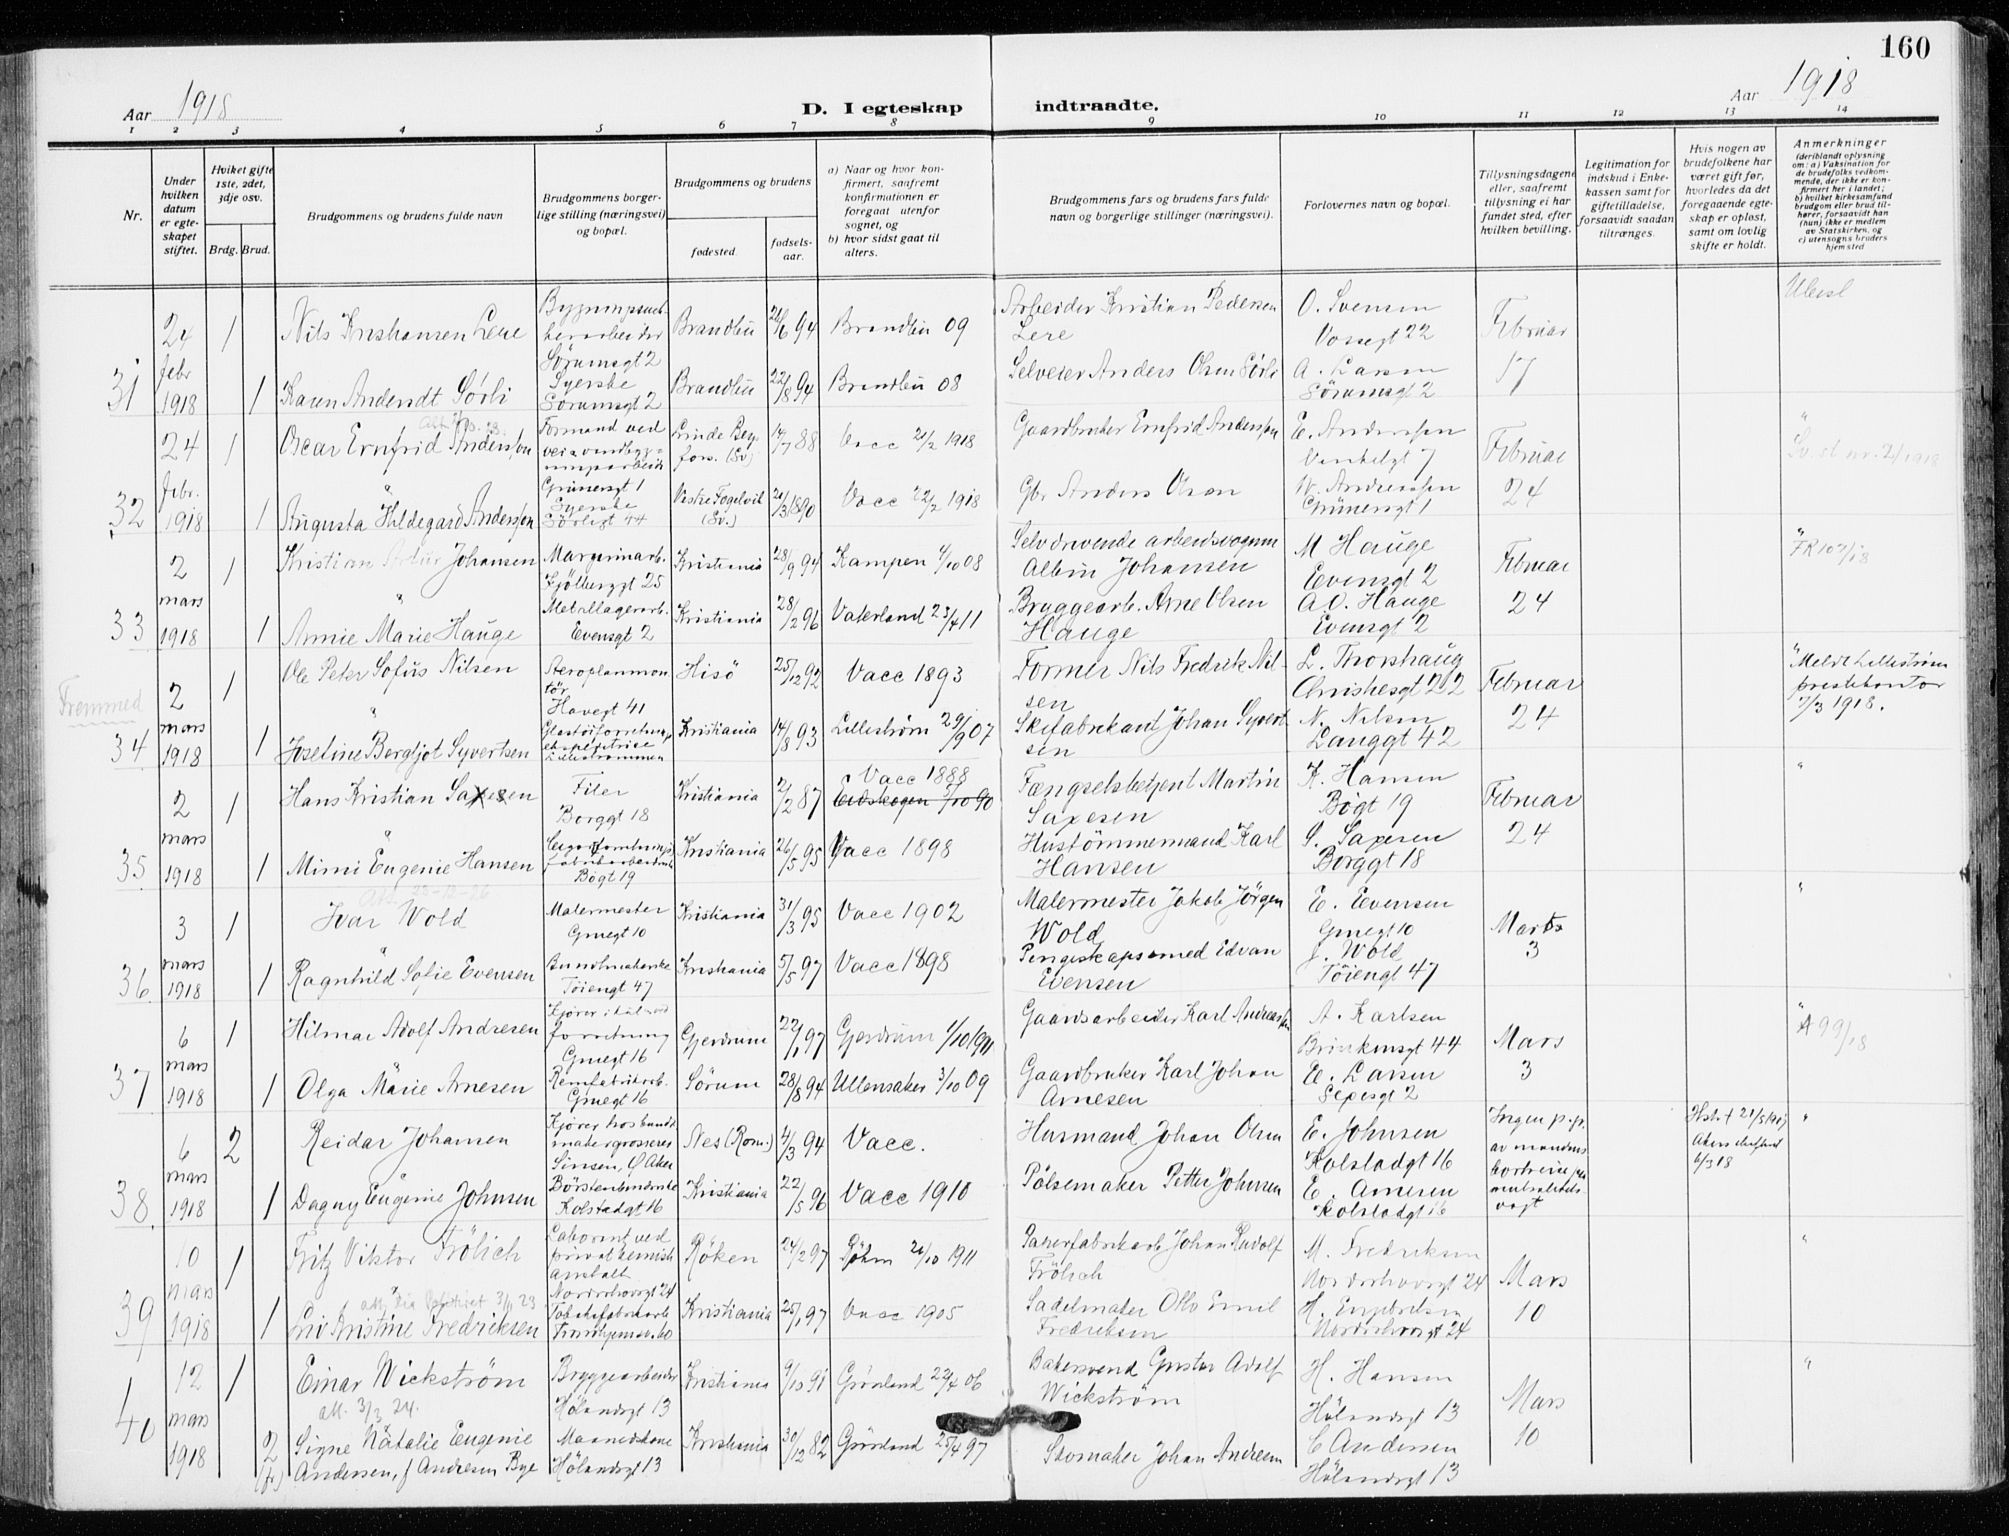 160
Aar 1918
D. I egteskap indtraadte.
Aar 1918
1 2 3 4 5 6 7 8 9 10 11 12 13 14
Nr.
Under hvilken datum er egteskapet stiftet.
Hvilket gifte 1ste, 2det, 3dje osv.
Brdg. Brud.
Brudgommens og brudens fulde navn
Brudgommens borgerlige stilling (næringsvei) og bopæl.
Brudgommens og brudens
fødested.
fødselsaar.
a) Naar og hvor konfirmert, saafremt konfirmationen er foregaat utenfor sognet, og
b) hvor sidst gaat til alters.
Brudgommens fars og brudens fars fulde navn og borgerlige stillinger (næringsvei).
Forlovernes navn og bopæl.
Tillysningsdagene eller, saafremt tillysning ei har fundet sted, efter hvilken bevilling.
Legitimation for indskud i Enkekassen samt for giftetilladelse, forsaavidt saadan tiltrænges.
Hvis nogen av brudefolkene har været gift før, hvorledes da det foregaaende egteskap er opløst, samt om lovlig skifte er holdt.
Anmerkninger
(deriblandt oplysning om: a) Vaksination for de brudefolks vedkommende, der ikke er konfirmert her i landet; b) hvilket kirkesamfund brudgom eller brud tilhører, forsaavidt han (hun) ikke er medlem av Statskirken, og c) utensogns bruders hjemsted
31 24 febr 1918 1 Nils Kristiansen Lere
Sörumsgt 2
Brandbu 21/6 94 Brandbu 09
Arbeider Kristian Pedersen Lere
O. Svensen Vossegt 22
Februar 17
1 Karen Anderdt Sørli
Syerske Sörumsgt 2
Brandbu 22/8 94 Brandbu 08
Selveier Anders Olsen Sörli
A. Larsen Sörumsgt 2
32 24 febr. 1918 1 Oscar Ernfrid Andersson
Formand ved
Grünersgt 1
Linde Bergs. (Sv) 14/7 88 Vacc 21/2 1918
Gaardbruker Ernfrid Andersson
E. Andersson
Februar 24
Sv. st nr. 2/1918
1 Augusta Hildegard Andersson
Syerske Sörligt 44
(Sv.) Vacc 22/2 1918
Gbr Anders Olson
Grünersgt 1
33 2 mars 1918 1 Kristian Artur Johansen
Margarinarb. Kjölberggt 25
Kristiania 28/9 94 Kampen 1/10 08
Selvdrivende arbeidsvognm Albin Johansen
M Hauge Evensgt 2
Februar 24
FR 107/18
1 Annie Marie Hauge
Metallagerarb. Evensgt 2
Kristiania 28/2 96 Vaterland 23/4 11
Bryggearb. Arne Olsen Hauge
A.O. Hauge Evensgt 2
Fremmed
34 2 mars 1918 1 Ole Peter Sofus Nilsen
Aeroplanmontör Havegt 41
Hisö 25/12 92 Vacc 1893
Former Nils Fredrik Nilsen
L. Thorshaug Christiesgt 22
Februar 24
Meldt Lillestrøm prestekontor 7/3 1918.
1 Josefine Bergljot Syvertsen
Lillestrømmen
Kristiania 14/8 93 Lillestrøm 29/9 07
Skifabrikant Johan Syvertsen
N. Nilsen Langgt 42
35 2 mars 1918 1 Hans Kristian Saxesen
Filer Borggt 18
Kristiania 2/2 87 Vacc 1888
Eidskogen 5/10 90
Fængselsbetjent Martin Saxesen
K. Hansen Bögt 19
Februar 24
1 Mimi Eugenie Hansen
Bögt 19
Kristiania 26/5 95 Vacc 1898
Hustömmermand Karl Hansen
S. Saxesen Borggt 18
36 3 mars 1918 1 Ivar Wold
Malermester Gmegt 10
Kristiania 31/3 95 Vacc 1902
Malermester Jakob Jörgen Wold
E. Evensen Gmegt 10
Marts 3
1 Ragnhild Sofie Evensen
Buntmakerske Töiengt 47
Kristiania 5/5 97 Vacc 1898
Pengeskapsmed Edvan Evensen
J. Wold Töiengt 47
37 6 mars 1918 1 Hilmar Adolf Andresen
forretning Gmegt 16
Gjerdrum 22/1 97 Gjerdrum 1/10 1911
Gaardsarbeider Karl Andreassen
A. Karlsen Brinkensgt 44
Mars 3
A 99/18
1 Olga Marie Arnesen
Remfabrikarb. Gmegt 16
Sörum 28/8 94 Ullensaker 3/10 09
Gaardbruker Karl Johan Arnesen
E. Larsen Sexesgt 2
38 6 mars 1918 2 Reidar Johansen
Kjörer hos
Sinsen, Ø Aker
Nes (Rom.) 4/3 94 Vacc.
Husmand Johan Olsen
E. Johnsen Kolstadgt 16
Ingen p.p. av mandens bortreise
1 Dagny Eugenie Johnsen
Börstenbinderske Kolstadgt 16
Kristiania 22/5 96 Vacc 1910
Pölsemaker Petter Johnsen
E. Arnesen Kolstadgt 16
39 10 mars 1918 1 Fritz Viktor Frölich
Laborant ved privat kemisk anstalt Nordrehovsgt 24
Røken 24/2 97 21/10 1911
Papirfabrikarb Johan Rudolf Frölich
M. Fredriksen Nordrehovsgt 24
Mars 10
1 Kristine Fredriksen
Tobaksfabrikarb
Kristiania 25/1 97 Vacc 1905
Sadelmaker Otto Emil Fredriksen
Nordrehovsgt 24
40 12 mars 1918 1 Einar Wickström
att. 3/3 24.
Bryggearbeider Hölandsgt 13
Kristiania 9/10 91 Grönland 22/4 06
Bakersvend Gustav Adolf Wickström
H. Hansen Hölandsgt 13
Mars 10
2 (fr) Signe Natalie Eugenie Andersen, f Andresen Bye
Hölandsgt 13
Kristiania 30/12 82 Grönland 25/4 97
Skomaker Johan Andresen
C Andersen Hölandsgt 13